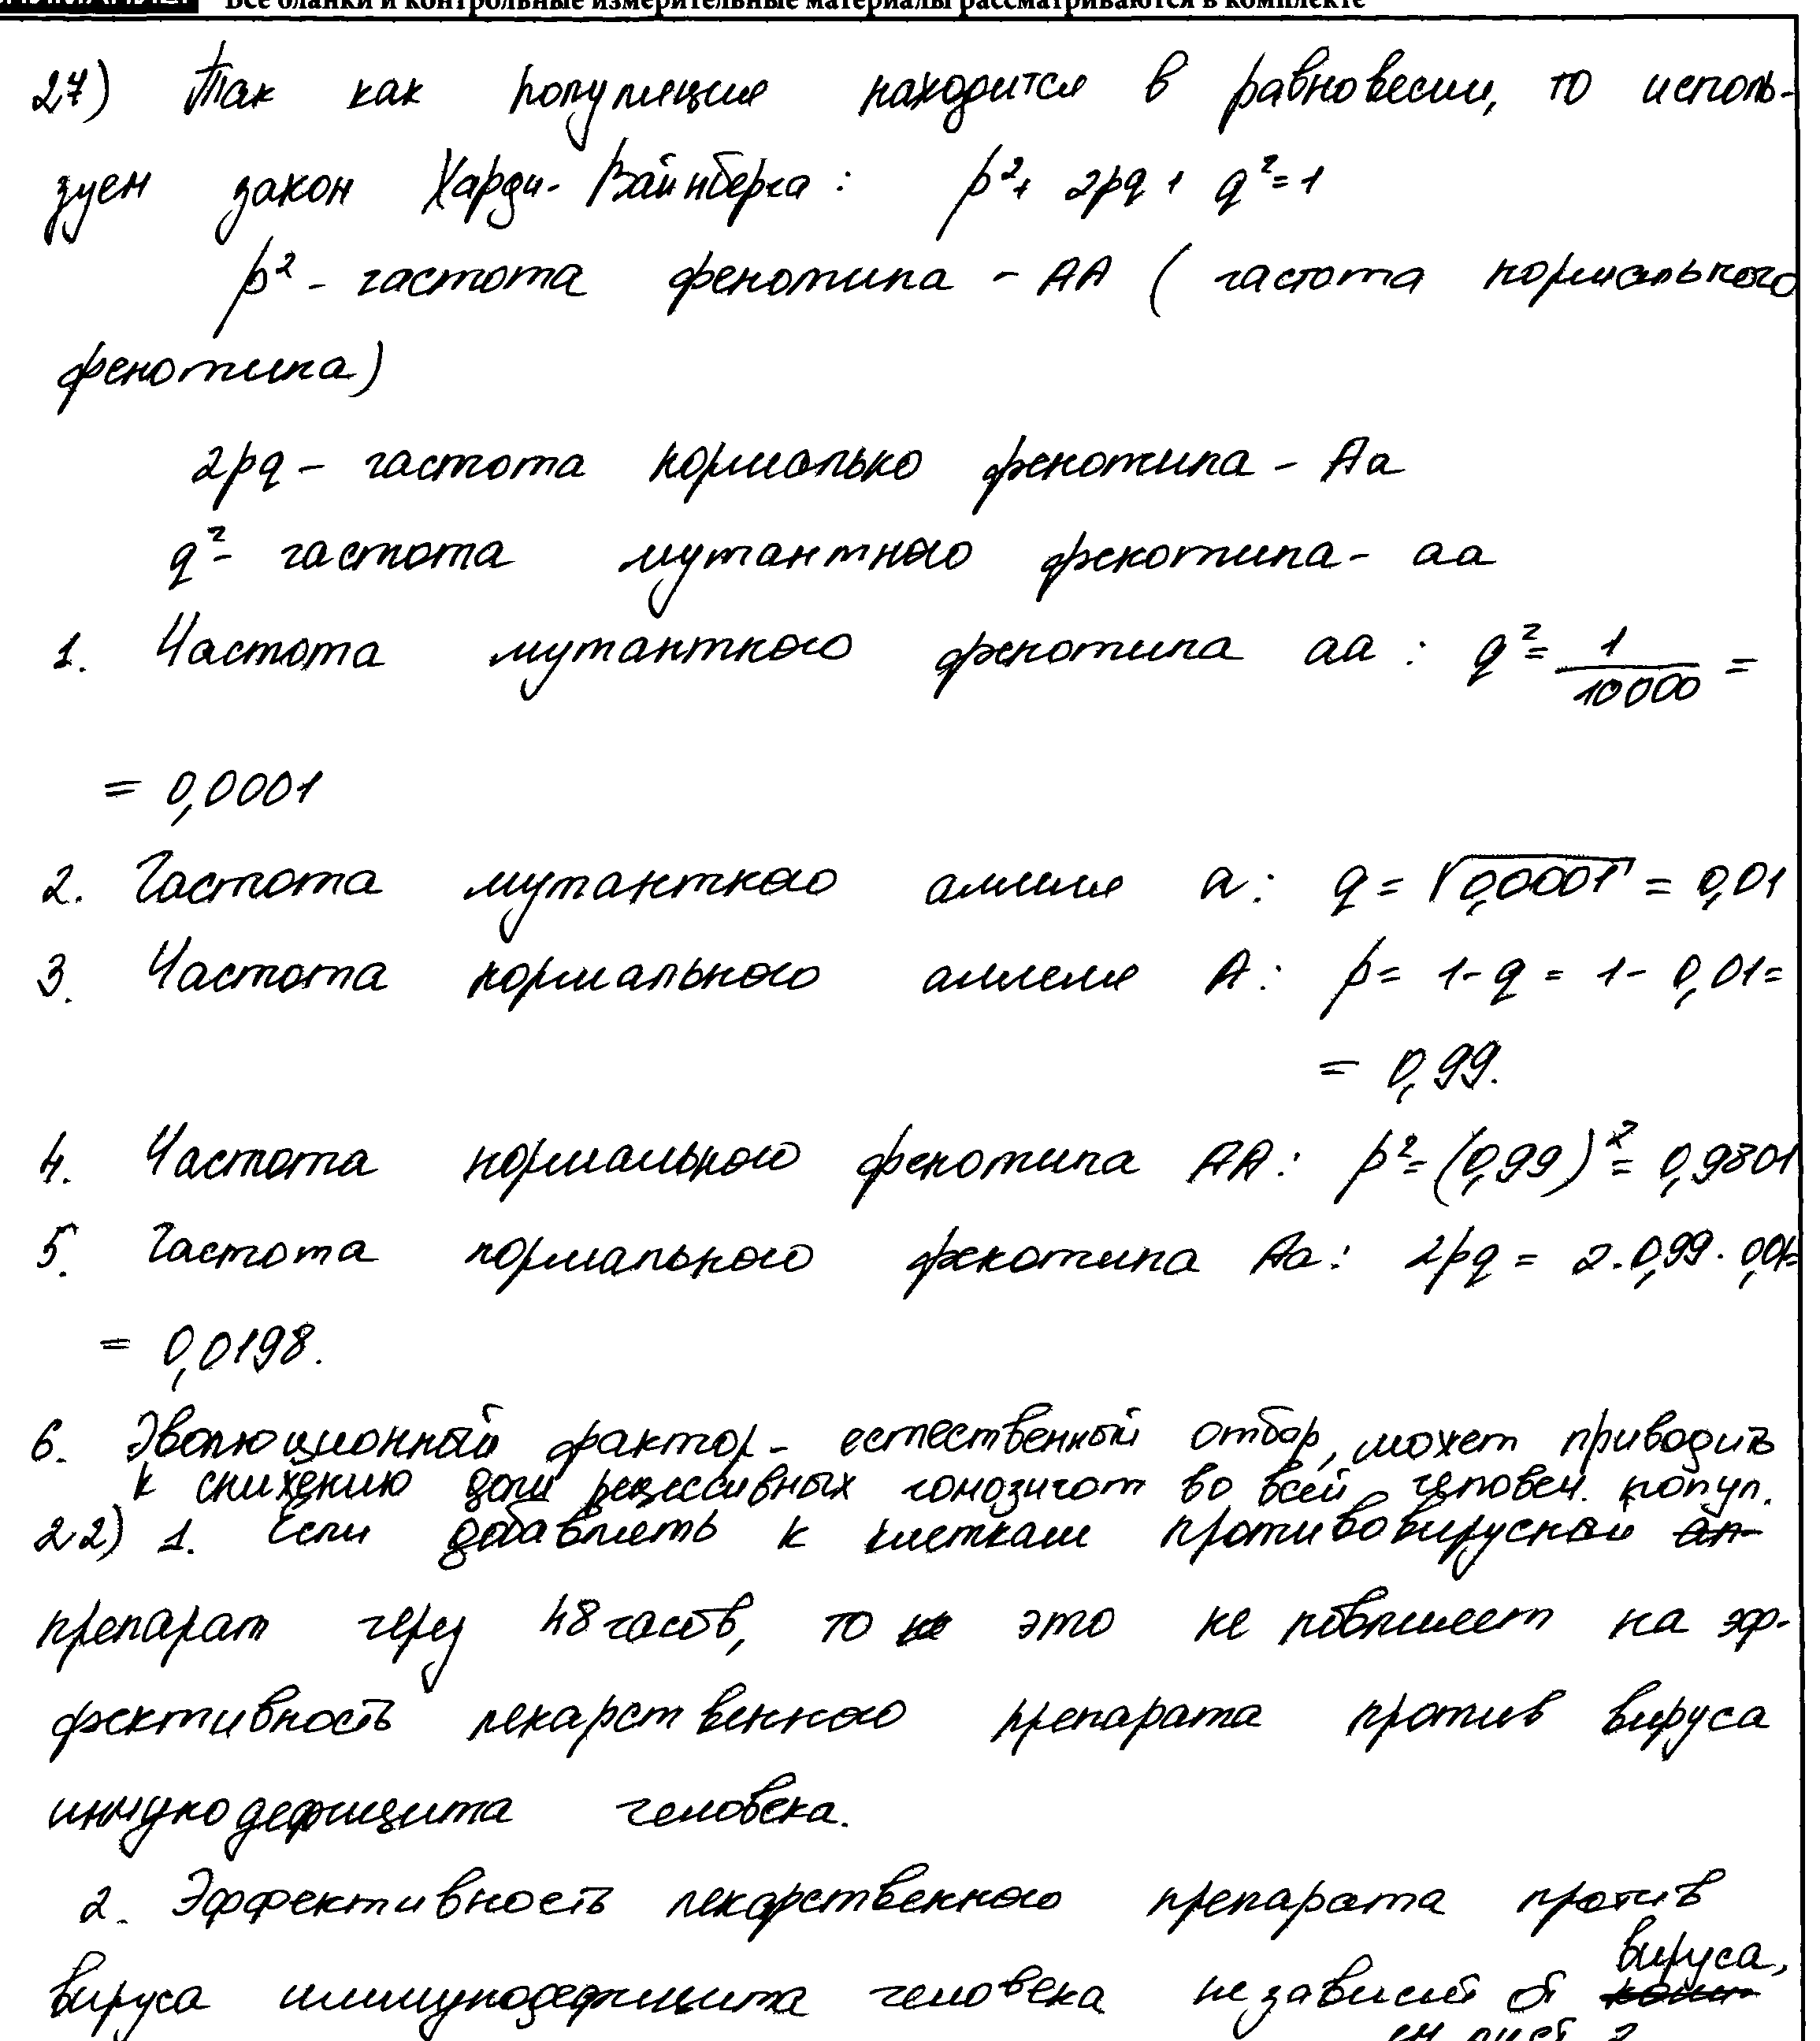 Все бланки и контрольные измерительные материалы рассматриваются в комплекте
27) Так как популяция находится в равновесии, то исполь-
зуем закон Харди-Вайнберга: p²+ 2pq + q²=1
p² - частота фенотипа - АА ( частота нормального
фенотипа)
2pq - частота нормально фенотипа - Аа
q² - частота мутантного фенотипа - аа
1. Частота мутантного фенотипа аа : q² = 1/10000 =
= 0,0001
2. Частота мутантного аллеля а: q = √0,0001 = 0,01
3. Частота нормального аллеля А: p = 1-q = 1 - 0,01 =
= 0,99.
4. Частота нормального фенотипа АА: p² = (0,99)² = 0,9801
5. Частота нормального фенотипа Аа: 2pq = 2·0,99·0,01=
= 0,0198.
6. Эволюционный фактор - естественный отбор, может приводить
к снижению доли рецессивных гомозигот во всей человеч. попул.
22) 1. Если добавлять к клеткам противовирусный
препарат через 48 часов, то это не повлияет на эф-
фективность лекарственного препарата против вируса
иммунодефицита человека.
2. Эффективность лекарственного препарата против
вируса иммунодефицита человека не зависит от вируса,
см лист 2